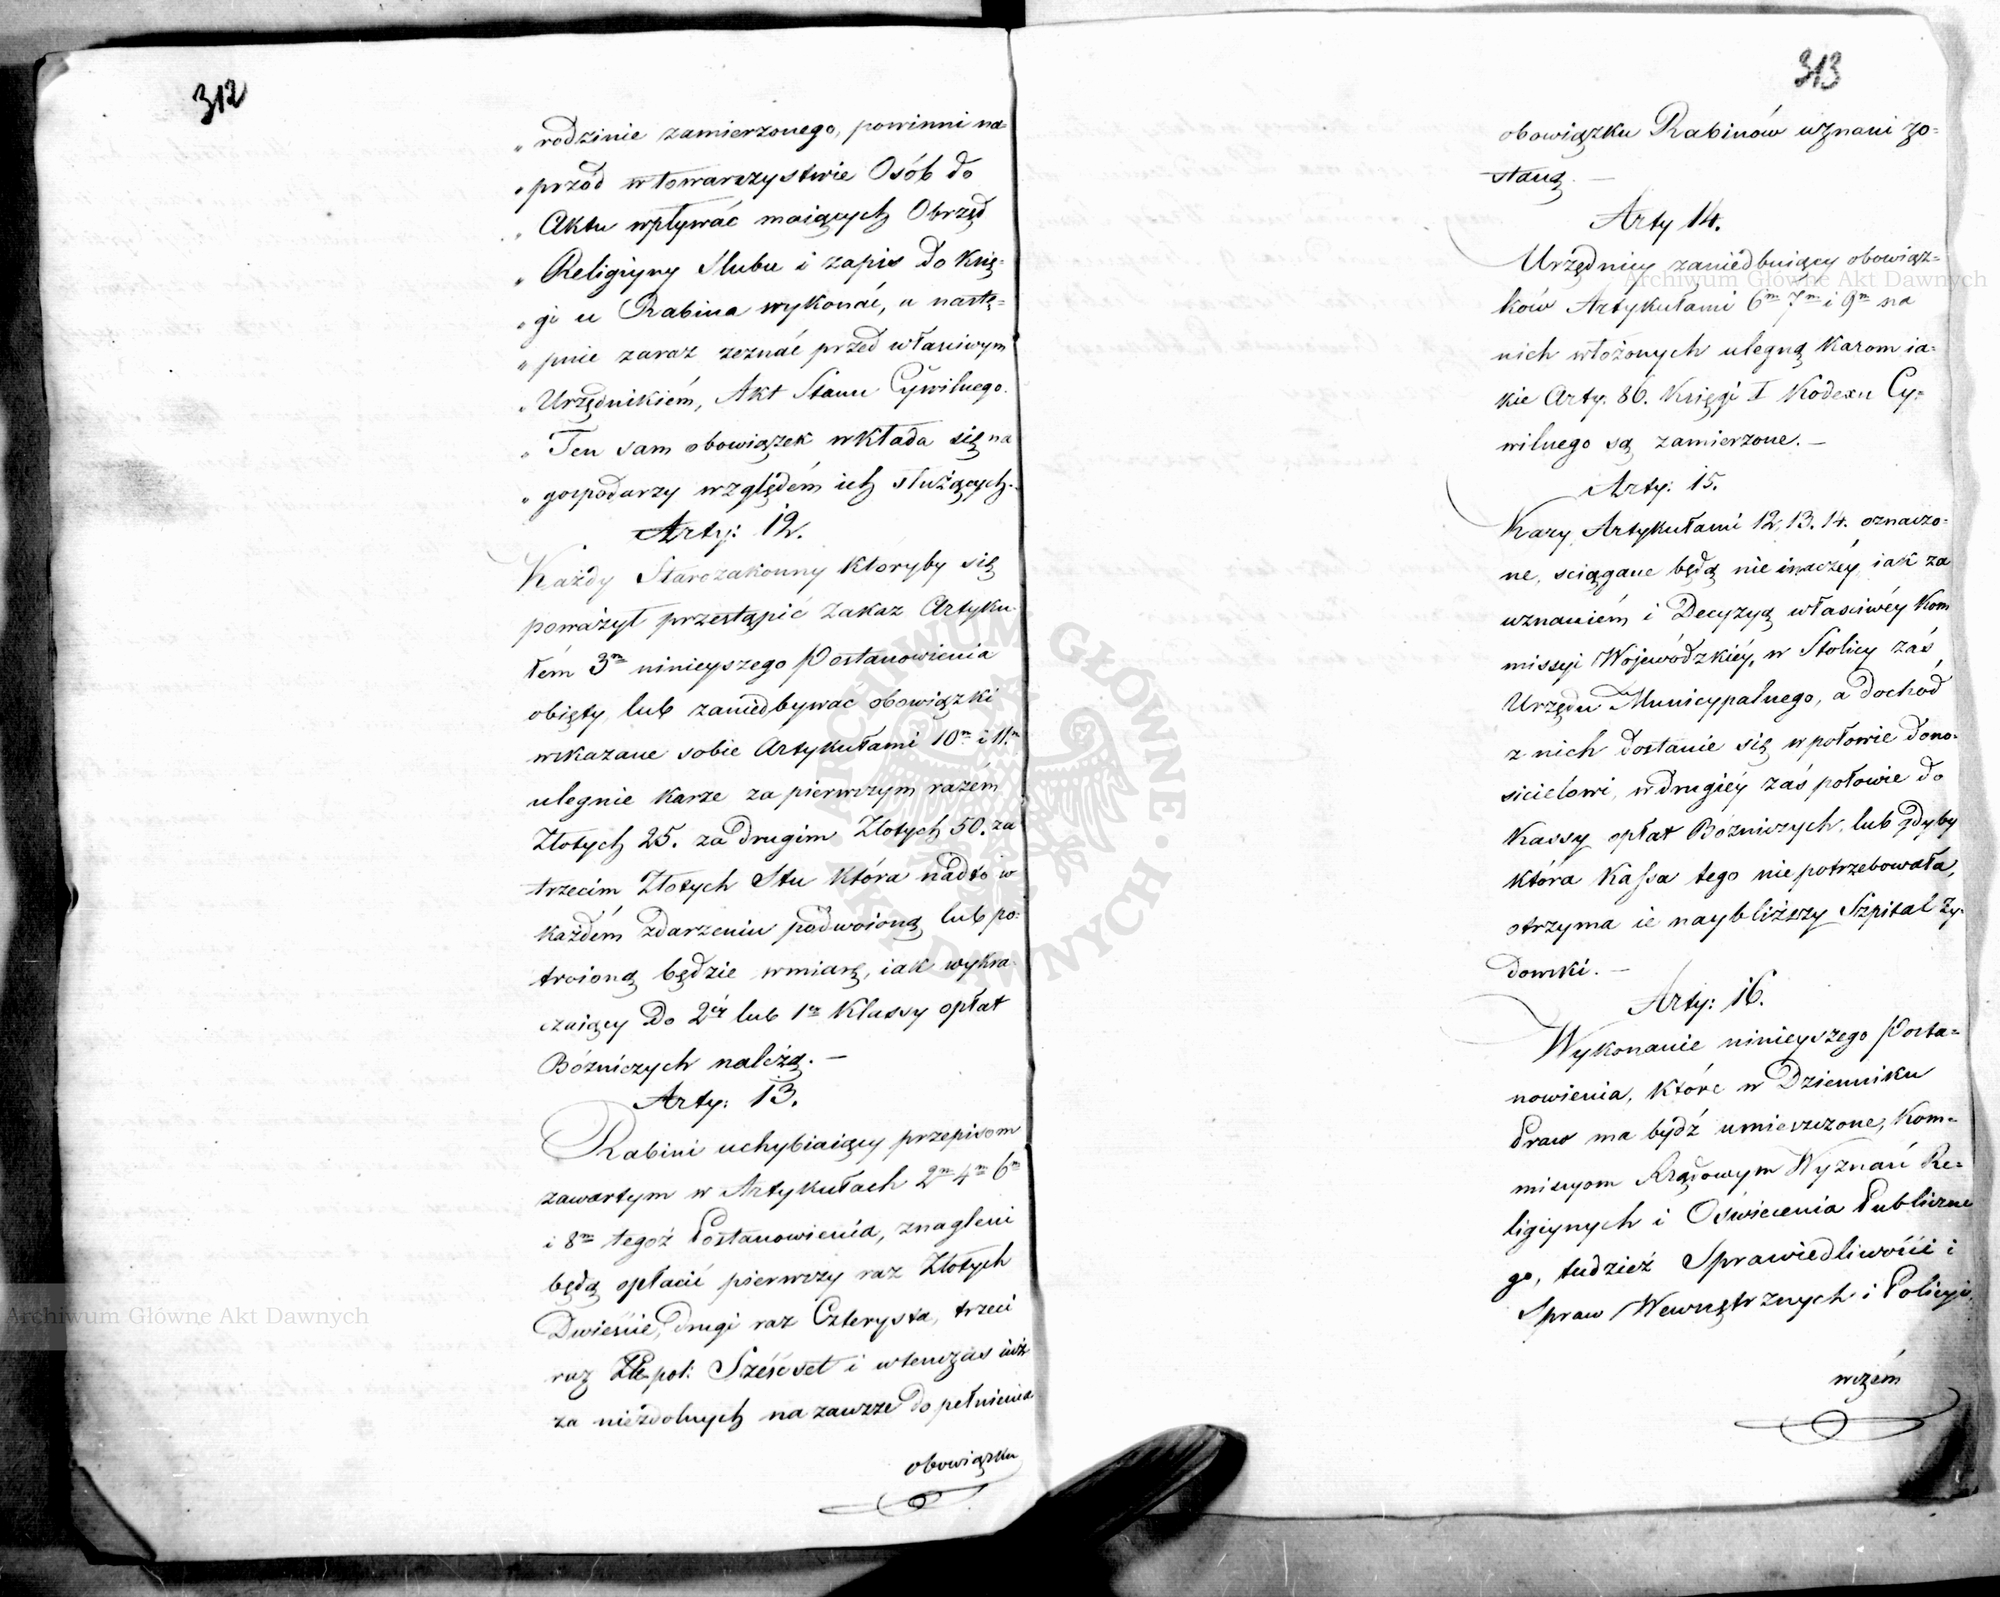 312
„ rodzinie zamierzonego, powinni na-
„ przód w towarzystwie Osób do
„ Aktu wpływać maiących Obrzęd
„ Religiyny Slubu i zapis do Księ-
„ gi u Rabina wykonać, a nastę-
„ pnie zaraz zeznać przed właściwym
„ Urzędnikiém, Akt Stanu Cywilnego.
„ Ten sam obowiązek wkłada się na
„ gospodarzy względém ich służących.
Arty: 12.
Każdy Starozakonny któryby się
poważył przestąpić zakaz Artyku-
łém 3m ninieyszego Postanowienia
obięty, lub zaniedbywać obowiązki
wskazane sobie Artykułami 10m i 11m
ulegnie karze za pierwszym razém
Złotych 25. za drugim Złotych 50. za
trzecim Złotych Stu która nadto w
każdém zdarzeniu podwoioną lub po-
troioną będzie w miarę, iak wykra-
czaiący do 2éy lub 1éy Klassy opłat
Bóźniczych należą. —
Arty: 13.
Rabini uchybiaiący przepisom
zawartym w Artykułach 2m 4m 6m
i 8m tegoż Postanowienia, znagleni
będą opłacić pierwszy raz Złotych
Dwieście, drugi raz Czterysta, trzeci
raz Złt. pol: Sześćset i wtenczas iuż
za niezdolnych na zawsze do pełnienia
obowiązku
313
obowiązku Rabinów uznani zo-
staną. —
Arty 14.
Urzędnicy zaniedbuiący obowiąz-
ków Artykułami 6m 7m i 9m na
nich włożonych ulegną karom ia-
kie Arty. 86. Księgi I Kodexu Cy-
wilnego są zamierzone. —
Arty: 15.
Kary Artykułami 12. 13. 14. oznaczo-
ne, ściągane będą nie inaczéy iak za
uznaniém i Decyzyą właściwéy Kom
missyi Wojewódzkiéy, w Stolicy zaś
Urzędu Municypalnego, a dochód
z nich dostanie się w połowie dono-
sicielowi, w drugiéy zaś połowie do
Kassy opłat Bóźniczych, lub gdyby
która Kassa tego nie potrzebowała,
otrzyma ie naybliższy Szpital Ży-
dowski. —
Arty: 16.
Wykonanie ninieyszego Posta-
nowienia, które w Dzienniku
Praw ma bydź umieszczone, Kom-
missyom Rządowym Wyznań Re-
ligiynych i Oświecenia Publiczne
go, tudzież Sprawiedliwości i
Spraw Wewnętrznych i Policyi,
wczém
Archiwum Główne Akt Dawnych
Archiwum Główne Akt Dawnych
ARCHIWUM GŁÓWNE AKT DAWNYCH